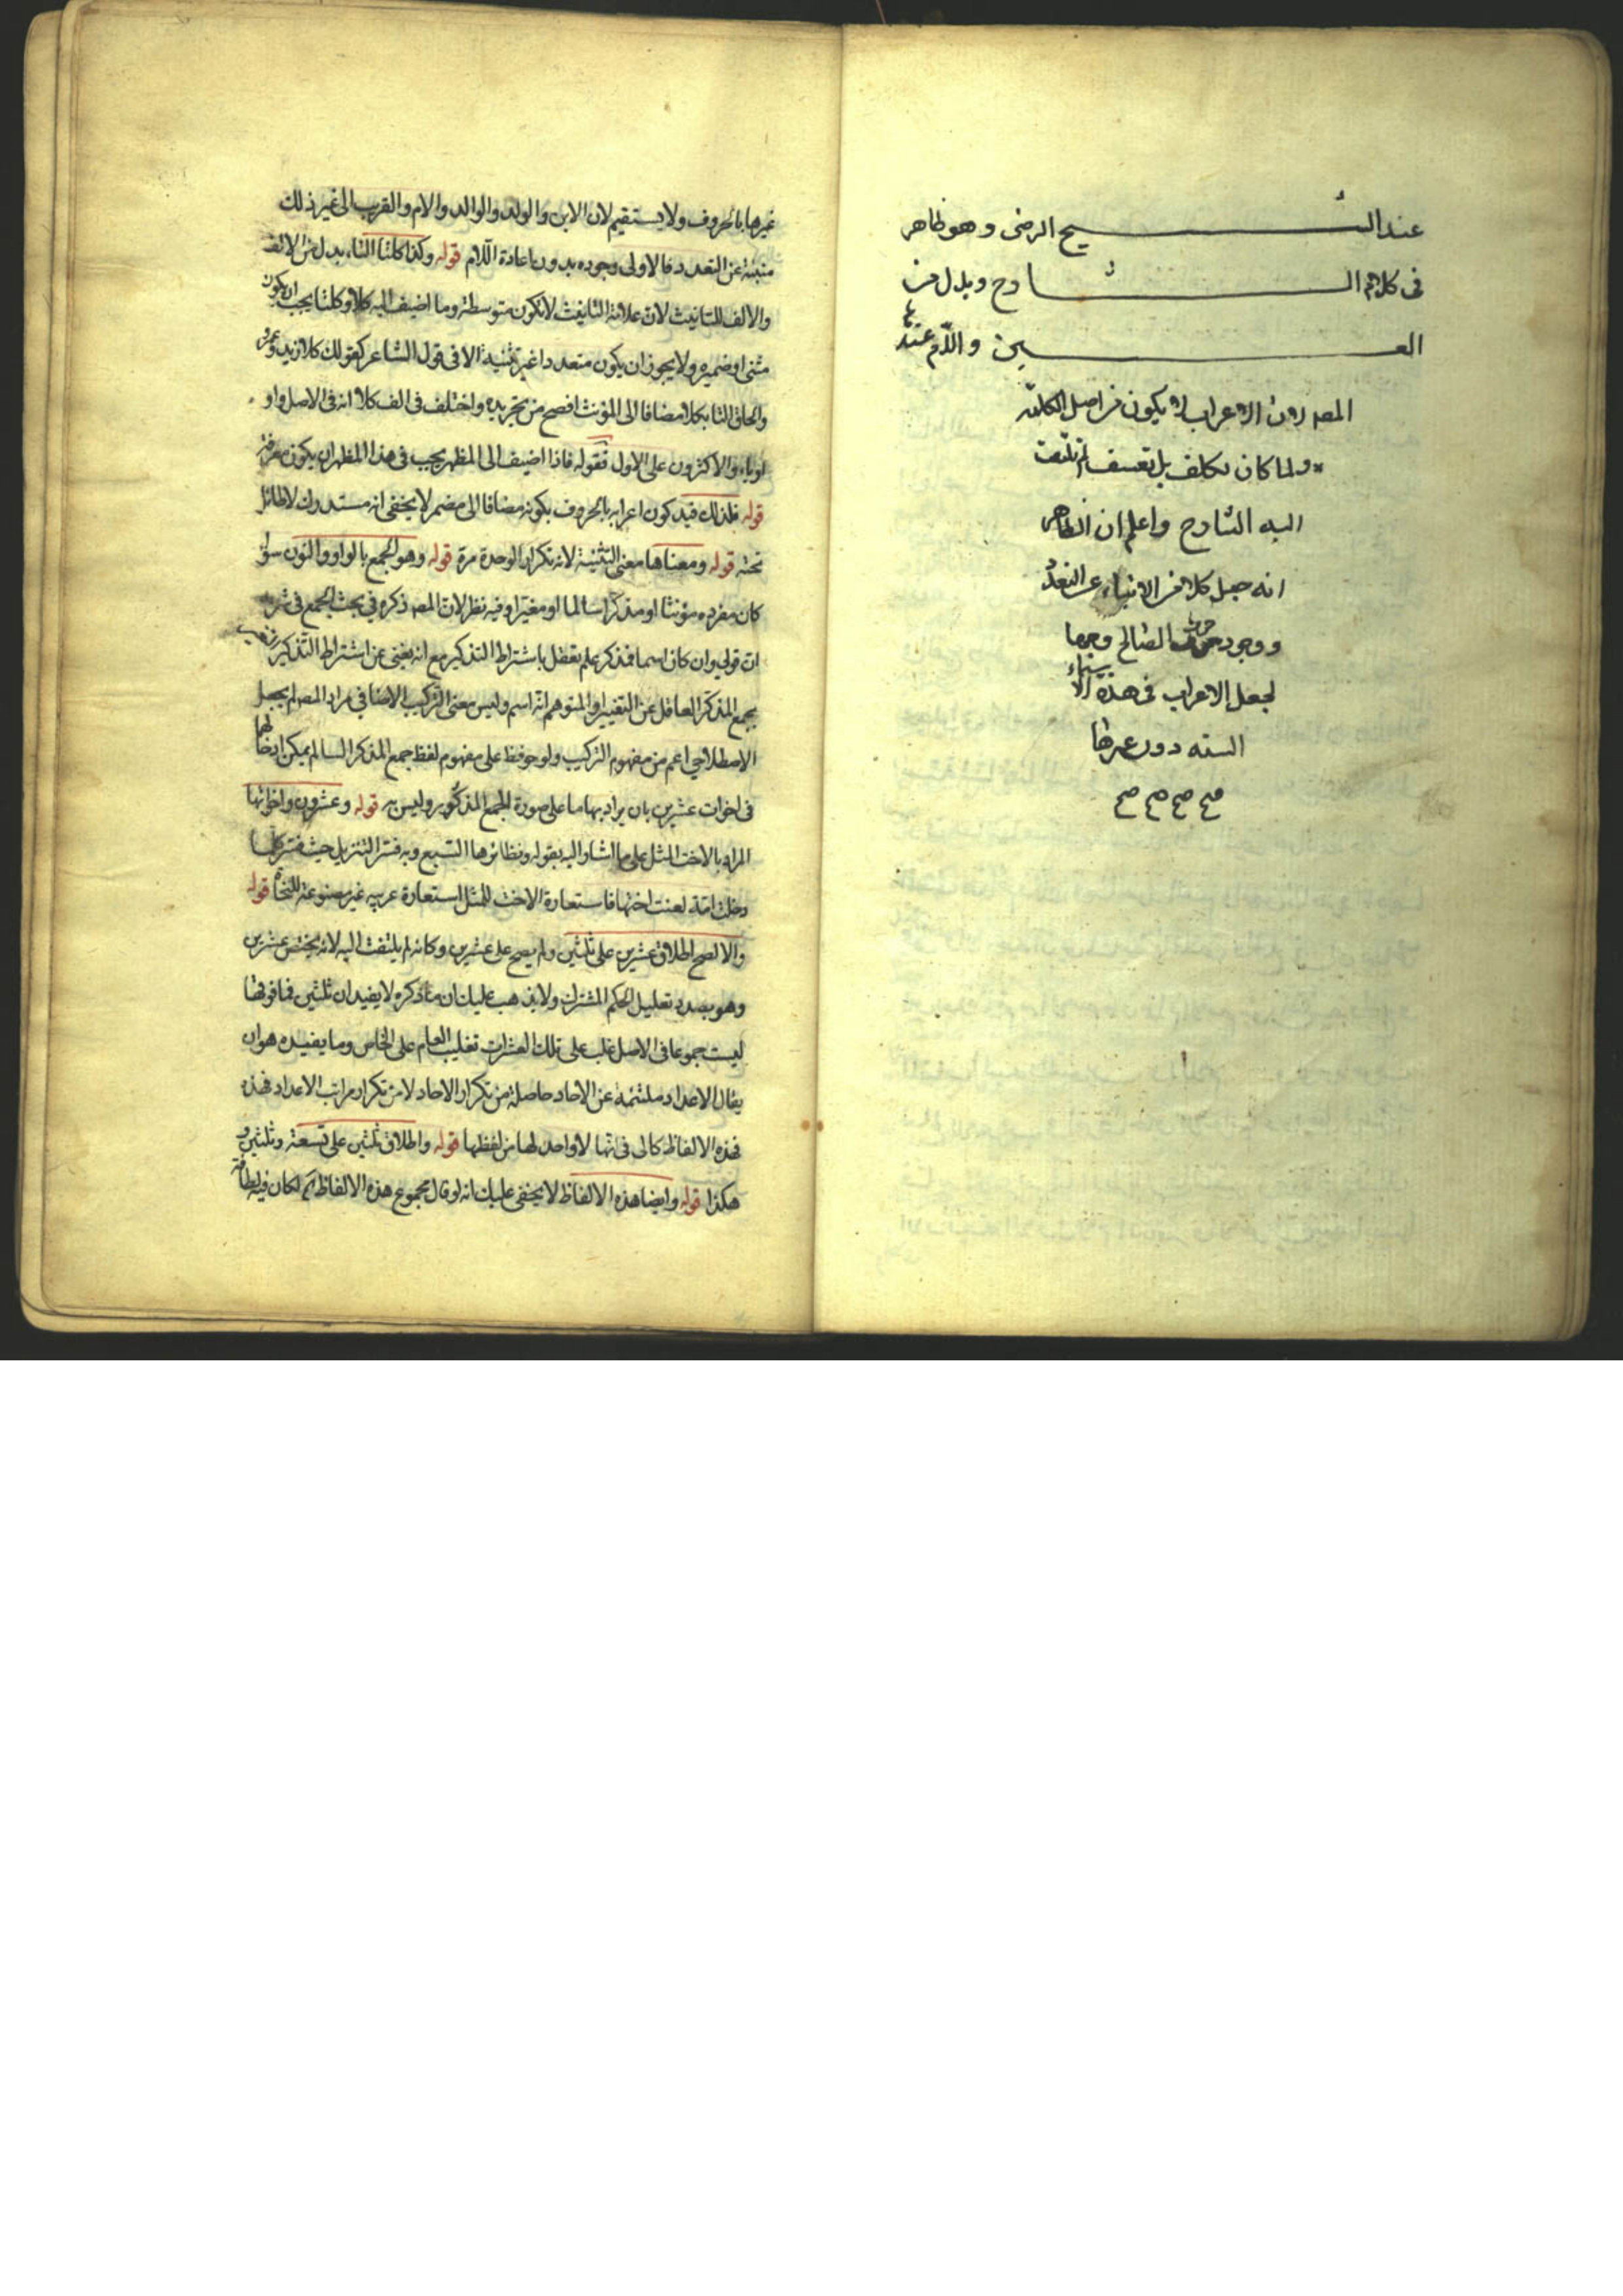 عند الشيخ الرضى وهو ظاهر
فى كلام الشارح وبدل من
العين واللام عند
المصہ لان الاعراب لا يكون من اصل الكلمة
ولما كان تكلف بل تعسف لم يلتفت
اليه الشارح واعلم ان الظاهر
انه جعل كلا من الانباء عن التعدد
ووجود حرف الصالح وجها
لجعل الاعراب فى هذه الاسماء
الستة دون غيرها
صح صح صح صح
غيرها بالحروف ولا يستقيم لان الابن والولد والوالد والام والقرب الى غير ذلك
منبئة عن التعدد فالاولى وجوده بدون اعادة اللام قوله وكذا كلتا التاء بدل من الالف
والالف للتانيث لان علامة التانيث لا تكون متوسطة وما اضيف اليه كلا وكلتا يجب ان يكون
مثنى او ضميره ولا يجوز ان يكون متعددا غير تثنية الا فى قول الشاعر كقولك كلا زيد وعمرو
والحاق التا بكلا مضافا الى المؤنث افصح من تجريده واختلف فى الف كلا انه فى الاصل واو
او ياء والاكثرون على الاول فقوله فاذا اضيف الى المظهر يجب فى هذا المظهر ان يكون معرفة
قوله فلذلك قيد كون اعرابه بالحروف بكونه مضافا الى مضمر لا يخفى انه مستدرك لا طائل
تحته قوله ومعناها معنى التثنية لانه تكرار الوحدة مرة قوله وهو الجمع بالواو والنون سواء
كان مفرده مؤنثا او مذكرا سالما او مغيرا وفيه نظر لان المصہ ذكره فى بحث الجمع فى شرط
ان قولى وان كان اسما فمذكر علم يعقل باشتراط التذكير مع انه يغنى عن اشتراط التذكير
بجمع المذكر الغافل عن التغيير او المتوهم انه اسم وليس معنى التركيب الاضافى مراد المصہ لم يجعل
الاصطلاحى اعم من مفهوم التركيب ولو حوفظ على مفهوم لفظ جمع المذكر السالم يمكن ادخالها
فى اخوات عشرين بان يراد بها ما على صورة الجمع المذكور وليس به قوله وعشرون واخواتها
المراد بالاخت المثل على ما اشار اليه بقوله ونظائرها السبع وبه فسر التنزيل حيث فسر كلما
دخلت امة لعنت اختها فاستعارة الاخت للمثل استعارة عربية غير مصنوعة للنحاة قوله
والا لصح اطلاق عشرين على ثلثين ولم يصح على عشرين وكانه لم يلتفت اليه لانه يختص عشرين
وهو بصدد تعليل الحكم المشترك ولا يذهب عليك ان ما ذكره لا يفيد ان ثلثين فما فوقها
ليست جموعا فى الاصل غلب على تلك العشرات تغليب العام على الخاص وما يفيده هو ان
يقال الاعداد ملتئمة عن الاحاد حاصلة من تكرار الاحاد لا من تكرار مراتب الاعداد فهذه
فهذه الالفاظ كالى فى انها لا واحد لها من لفظها قوله واطلاق ثلثين على تسعة وثلثين و
هكذا قوله وايضا هذه الالفاظ لا يخفى عليك انه لو قال مجموع هذه الالفاظ لكان فيه لطافة